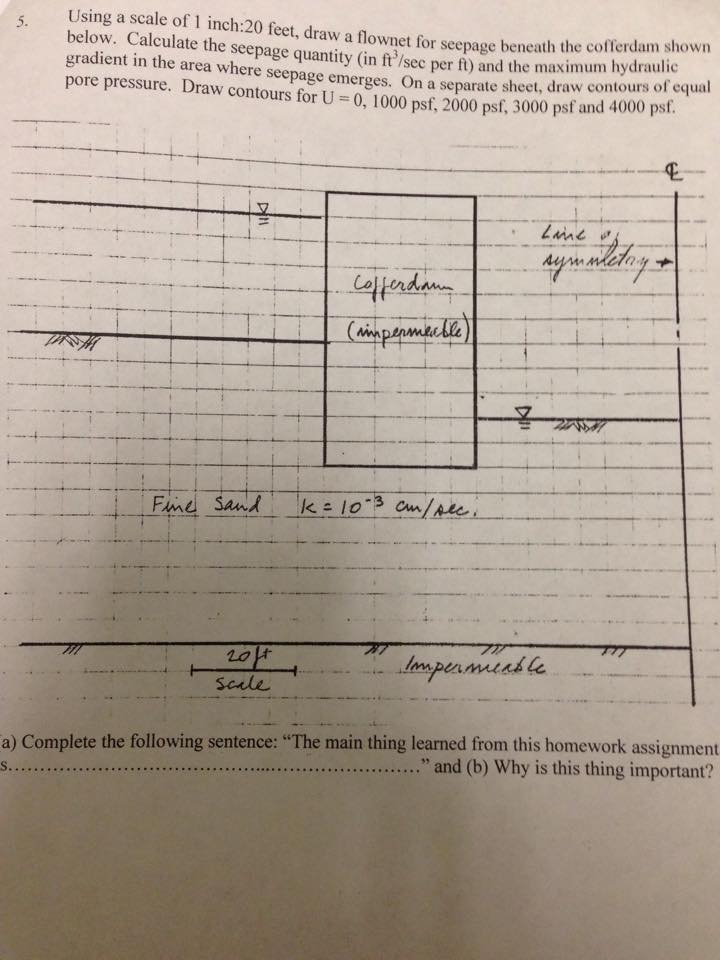 5. Using a scale of 1 inch:20 feet, draw a flownet for seepage beneath the cofferdam shown
below. Calculate the seepage quantity (in ft³/sec per ft) and the maximum hydraulic
gradient in the area where seepage emerges. On a separate sheet, draw contours of equal
pore pressure. Draw contours for U = 0, 1000 psf, 2000 psf, 3000 psf and 4000 psf.
℄
Line of
symmetry
Cofferdam
(impermeable)
Fine Sand k = 10⁻³ cm/sec.
20ft
Scale
Impermeable
a) Complete the following sentence: “The main thing learned from this homework assignment
s..............................................................” and (b) Why is this thing important?